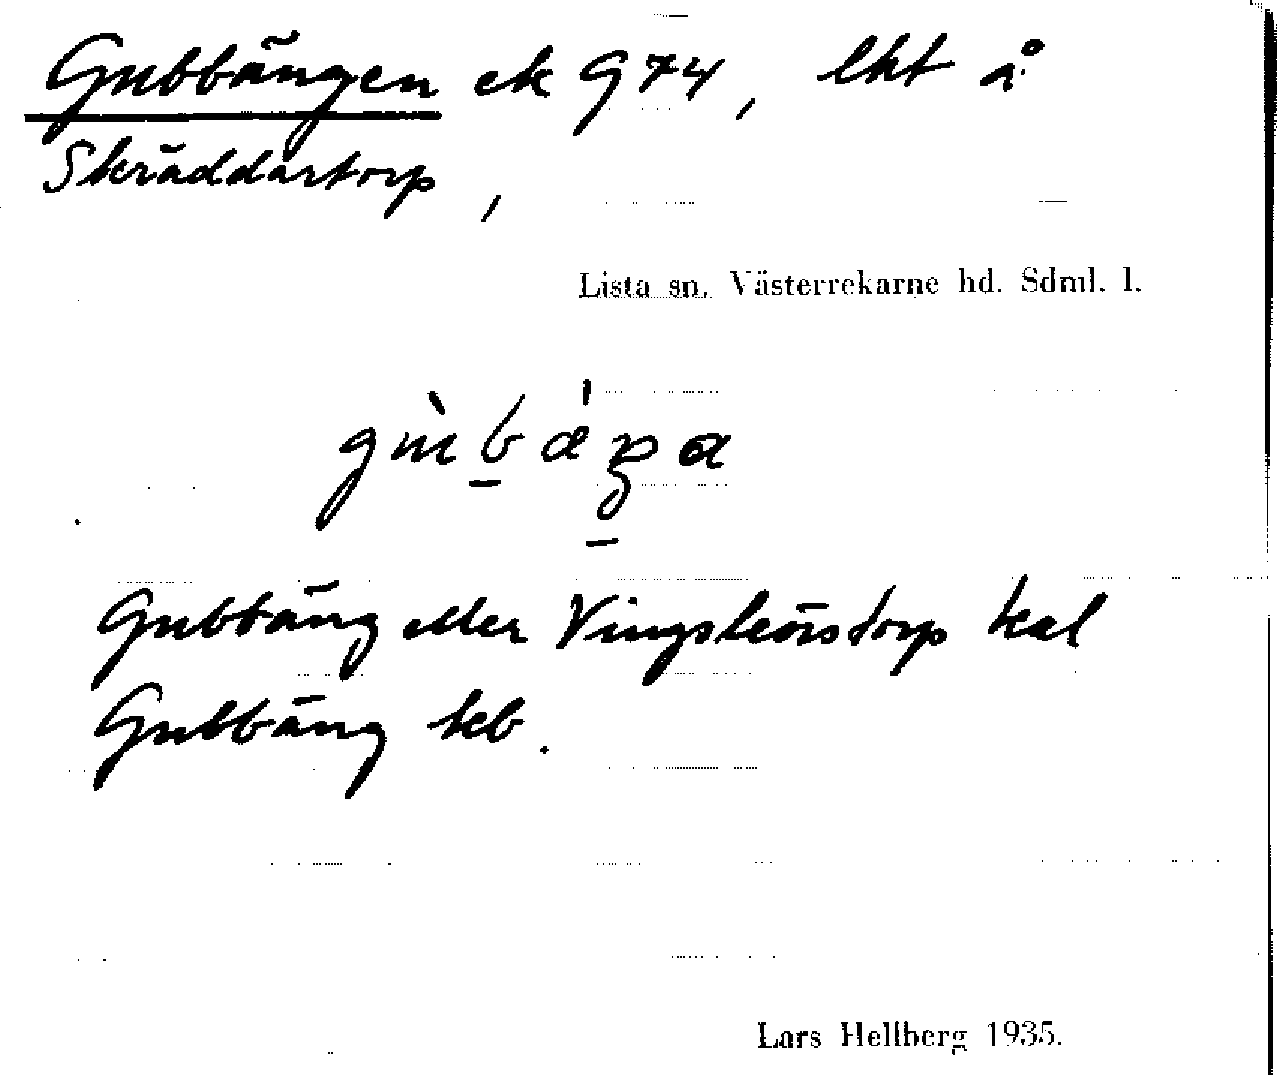 Gubbängen ek G 74, lht å
Skräddartorp,
Lista sn. Västerrekarne hd. Sdml. l.
Gubbäng eller Vingskörstorp kal
Gubbäng kb.
Lars Hellberg 1935.